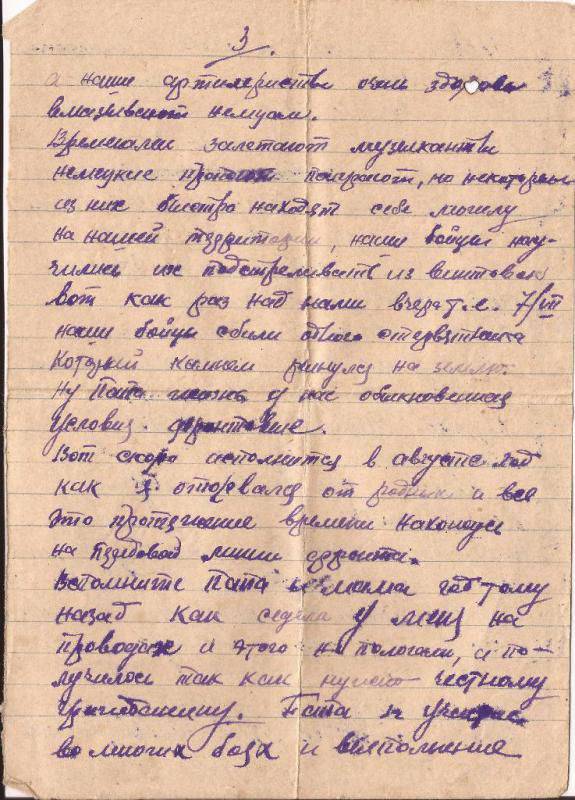 3.
а наши артилеристы очень здорово
вмазывают немцам.
Временами залетают музыканты
немецкие поиграют, но некоторые
из них быстро находят себе могилу
на нашей территории, наши бойцы нау-
чились их подстреливать из винтовок
вот как раз над нами вчера т.е. 7/VII
наши бойцы сбили одного стервятника
который камнем ринулся на землю.
Ну Папа жизнь у нас обыкновенная
условия фронтовые.
Вот скоро исполнится в августе год
как я оторвался от родных и все
это протяжение времени нахожусь
на передовой линии фронта.
Вспомните Папа и мама год тому
назад как сидели у меня на
проводах и этого не пологали, а по-
лучилось так как нужно честному
гражданину. Папа я
во многих боях и выполнение